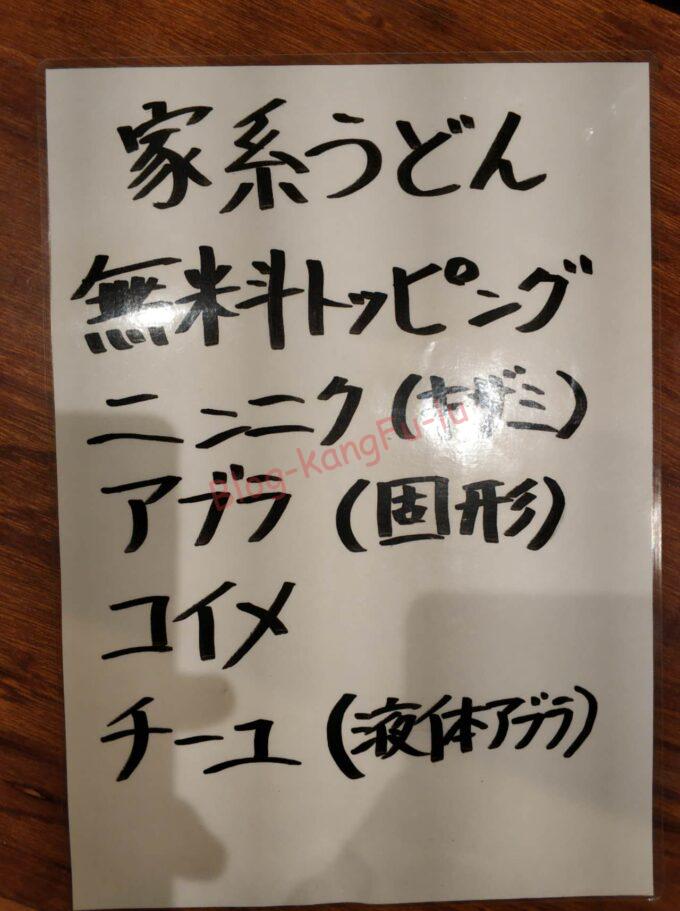 家系うどん
無料トッピング
ニンニク(キザミ)
アブラ(固形)
コイメ
チーユ(液体アブラ)
Blog-KangFu-lu